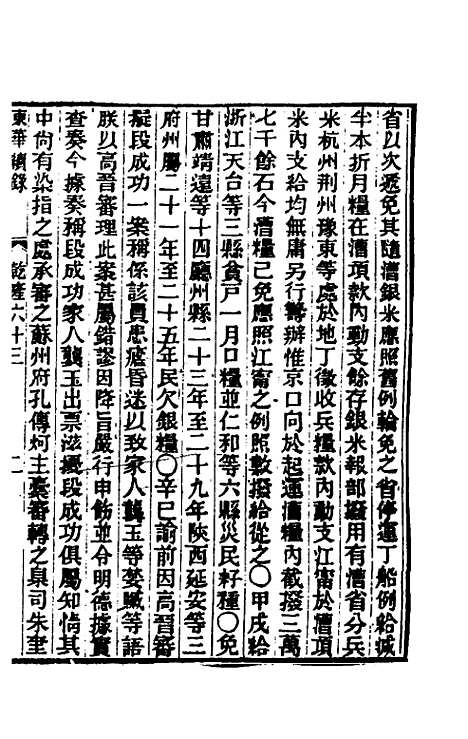 省以次遞免其隨漕銀米應照舊例輪免之省停運丁船例給減
半本折月糧在漕項款內動支餘存銀米報部撥用有漕省分兵
米杭州荆州豫東等處於地丁徵收兵糧款內動支江甯於漕項
米內支給均無庸另行籌辦惟京口向於起運漕糧內截撥三萬
七千餘石今漕糧已免應照江甯之例照數撥給從之○甲戌給
浙江天台等三縣貧戶一月口糧並仁和等六縣災民籽種○免
甘肅靖遠等十四廳州縣二十三年至二十九年陝西延安等三
府州屬二十一年至二十五年民欠銀糧○辛巳諭前因高晉審
擬段成功一案稱係該員患瘧昏迷以致家人龔玉等婪贓等語
朕以高晉審理此案甚屬錯謬因降旨嚴行申飭並令明德據實
查奏今據奏稱段成功家人龔玉出票滋擾段成功俱屬知情其
中尚有染指之處承審之蘇州府孔傳炣主稾審轉之臬司朱奎
東華續錄 乾隆六十三 二